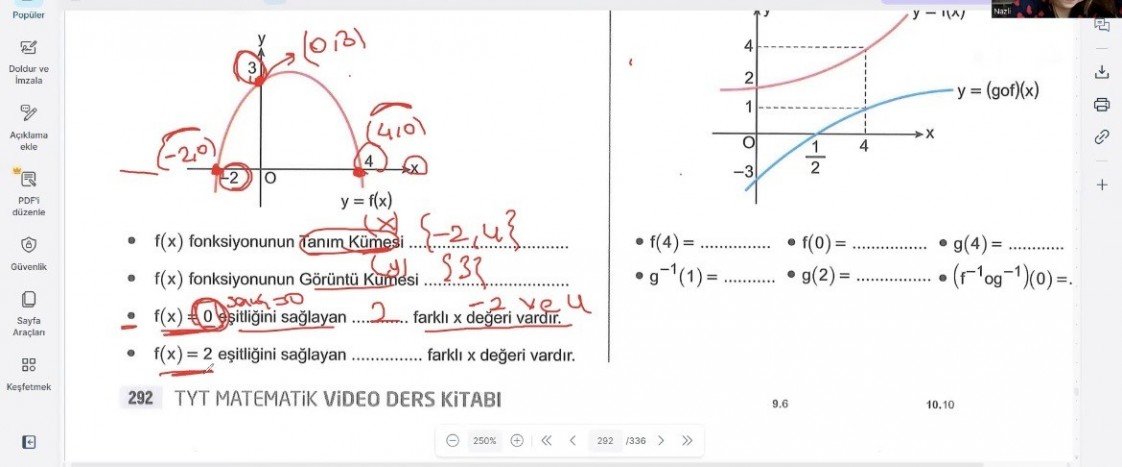 Popüler
Doldur ve
İmzala
Açıklama
ekle
PDF'i
düzenle
Güvenlik
Sayfa
Araçları
Keşfetmek
y
3
(0,3)
(-2,0)
(4,0)
-2
O
4
x
y = f(x)
(x)
• f(x) fonksiyonunun Tanım Kümesi {-2,4}
(y)
• f(x) fonksiyonunun Görüntü Kümesi {3}
• f(x) = 0 eşitliğini sağlayan ... 2 ... farklı x değeri vardır. -2 ve 4
• f(x) = 2 eşitliğini sağlayan .............. farklı x değeri vardır.
292 TYT MATEMATİK VİDEO DERS KİTABI
y
y = f(x)
Nazlı
4
2
1
y = (gof)(x)
O
1/2
4
x
-3
• f(4) = ............ • f(0) = ............. • g(4) = ..........
• g⁻¹(1) = ........... • g(2) = ............. • (f⁻¹og⁻¹)(0) =.
9.6
10.10
250%
292 /336